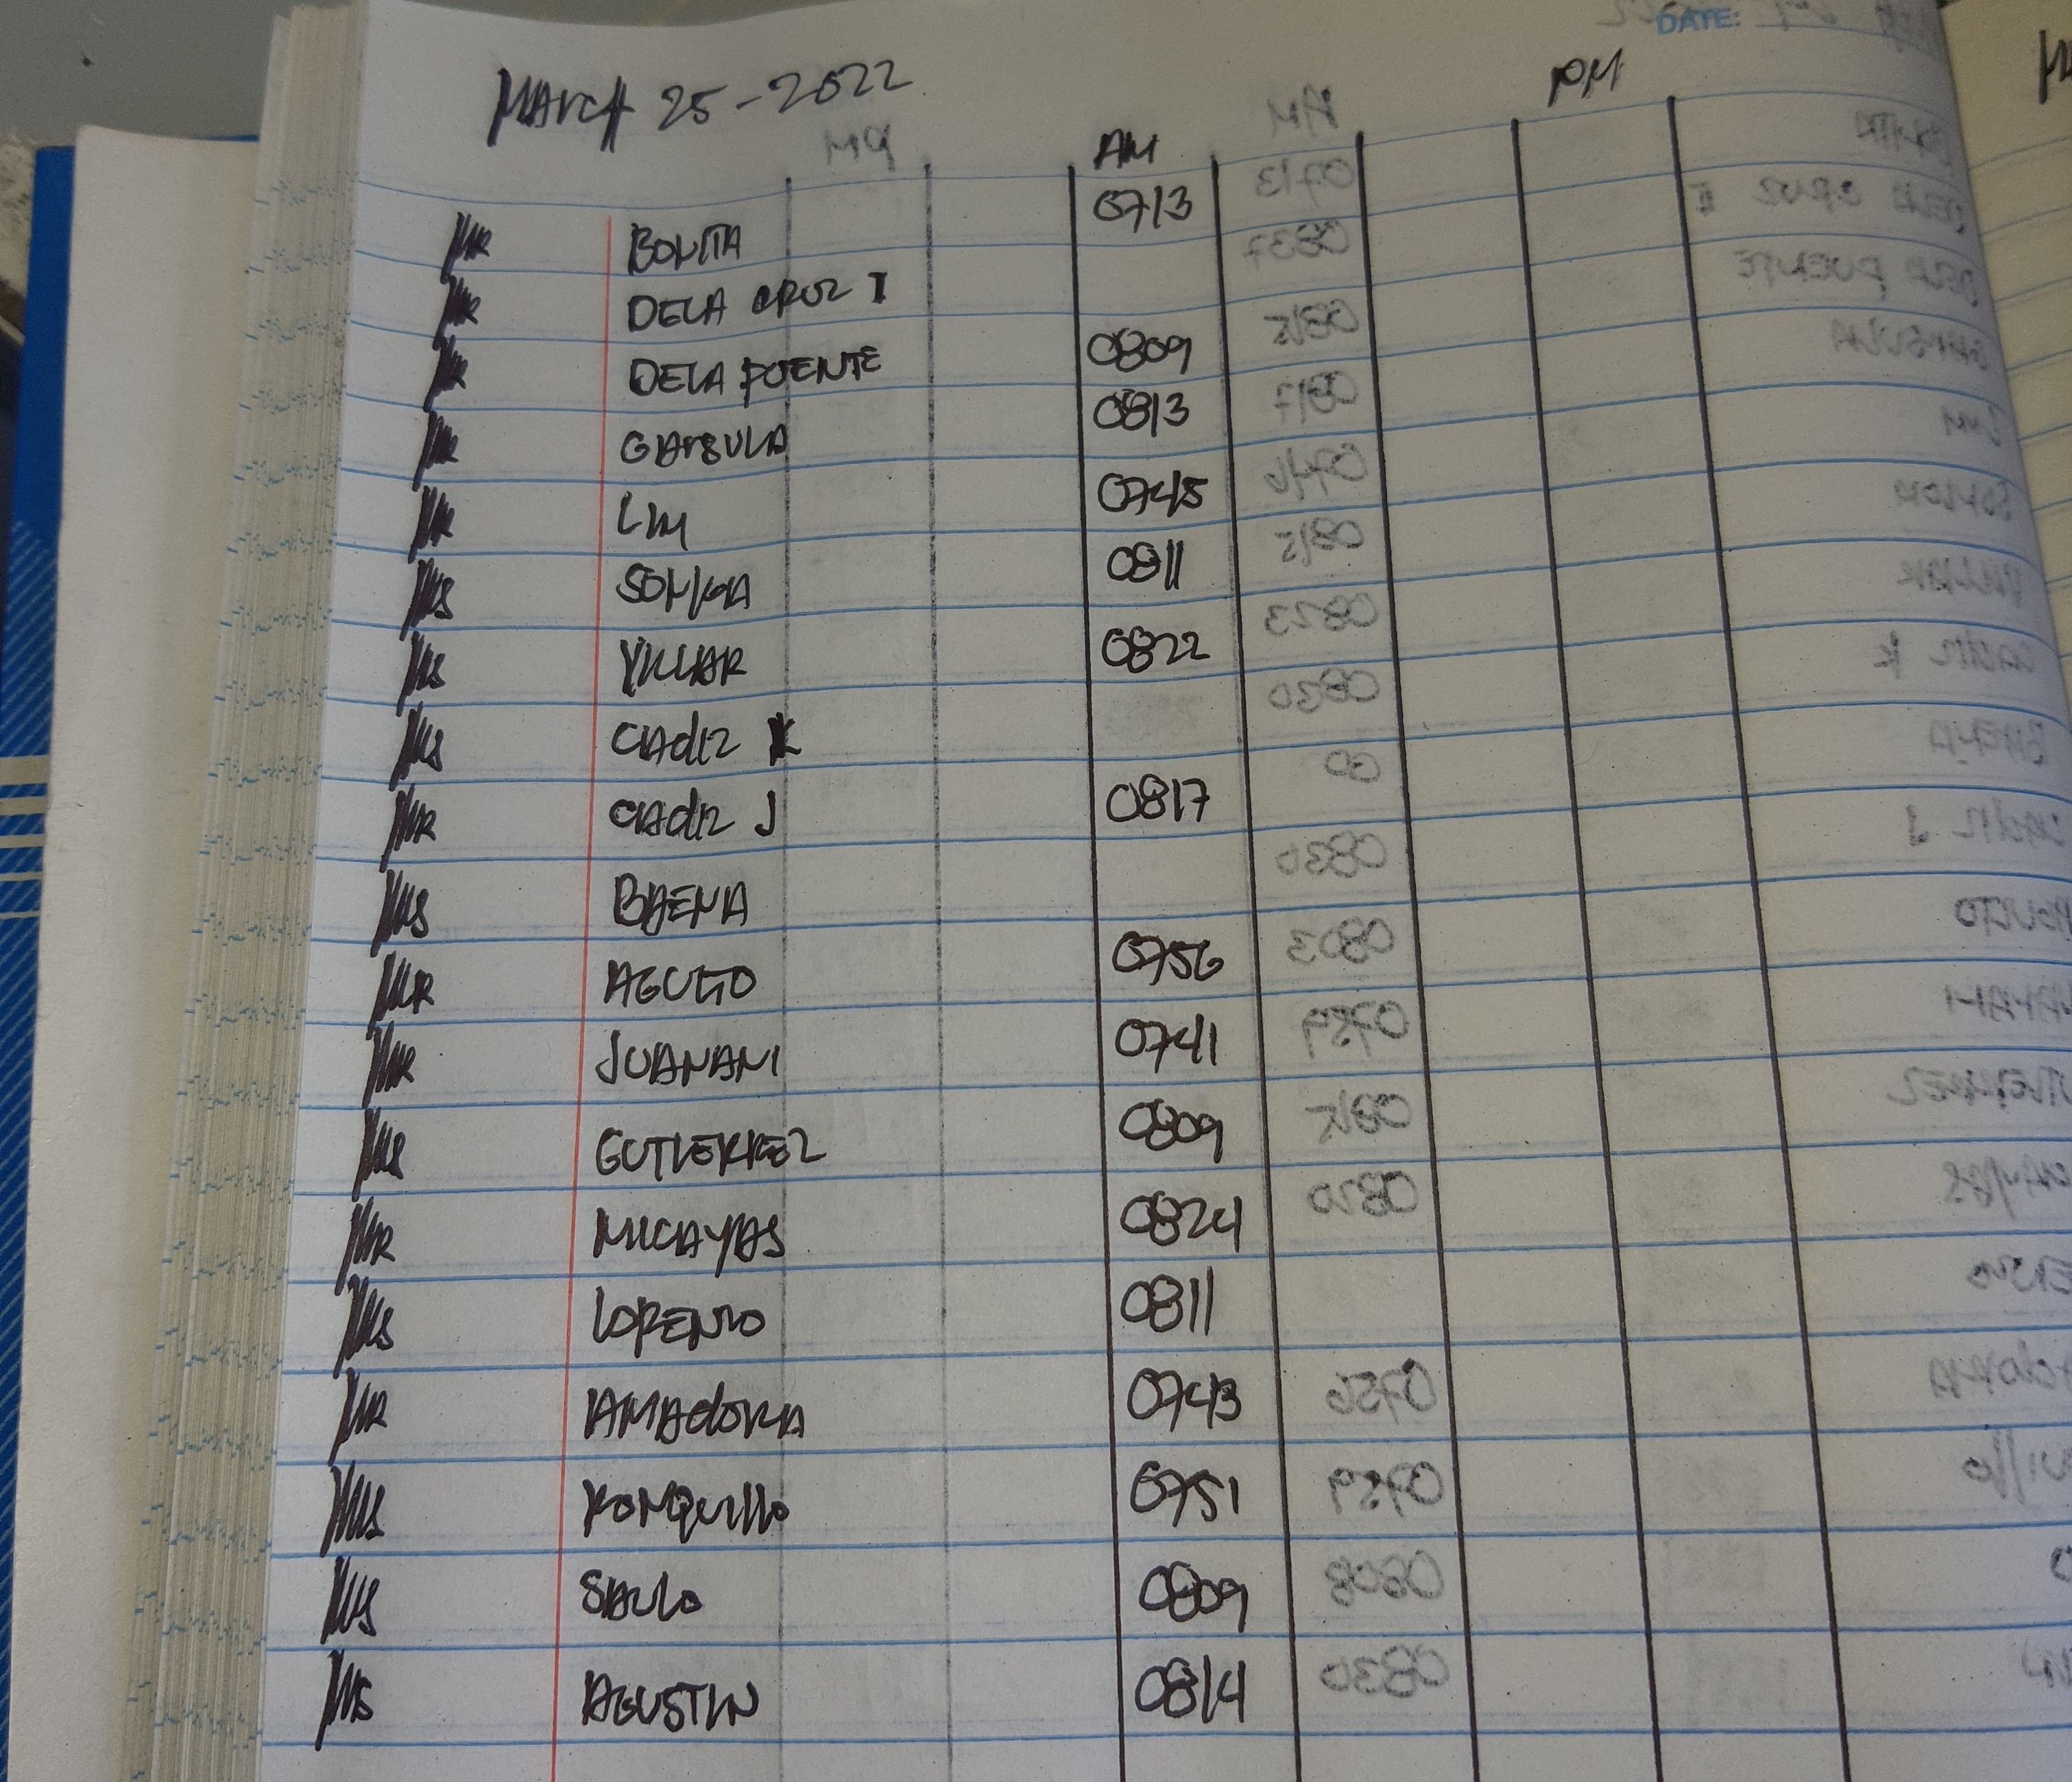 DATE:
MARCH 25-2022
AM PM
MR BONITA 0713
MR DELA CRUZ I
MR DELA PUENTE 0809
MR GARSULA 0813
MR LIM 0745
MS 0811
MS VILLAR 0822
MS CADIZ K
MR CADIZ J 0817
MS BAENA
MR AGULTO 0756
MR JUANANI 0741
MS GUTIERREZ 0809
MR MICAYAS 0824
MS LORENZO 0811
MR AMADORA 0743
MS RONQUILLO 0751
MS SAULO 0809
MS AGUSTIN 0814